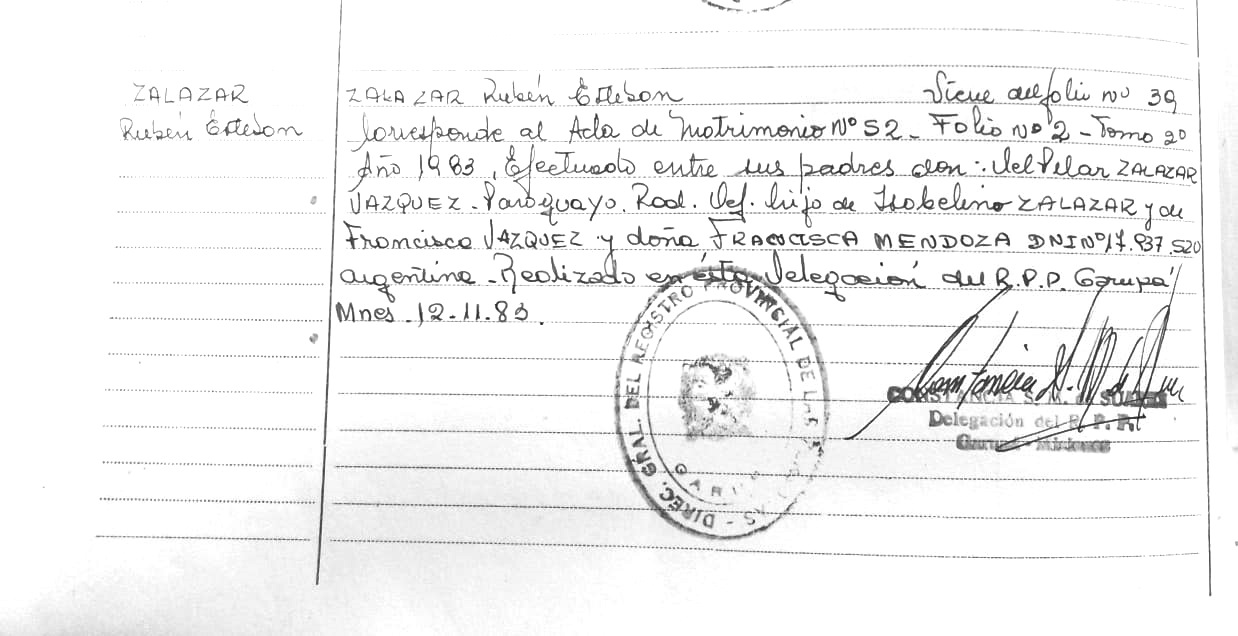 ZALAZAR
Rubén Esteban
ZALAZAR Rubén Esteban Viene del folio nº 39
Corresponde al Acta de Matrimonio Nº 52 - Folio nº 2 - Tomo 2º
Año 1983, Efectuado entre sus padres don: Del Pilar ZALAZAR
VAZQUEZ - Paraguayo. Rad. Def. hijo de Isabelino ZALAZAR y de
Francisca VAZQUEZ y doña FRANCISCA MENDOZA DNI Nº 17.937.520
argentina - Realizado en ésta Delegación del R.P.P. Garupá
Mnes - 12-11-83.
DIREC. GRAL. DEL REGISTRO PROVINCIAL DE LAS
Delegación del R. P. P.